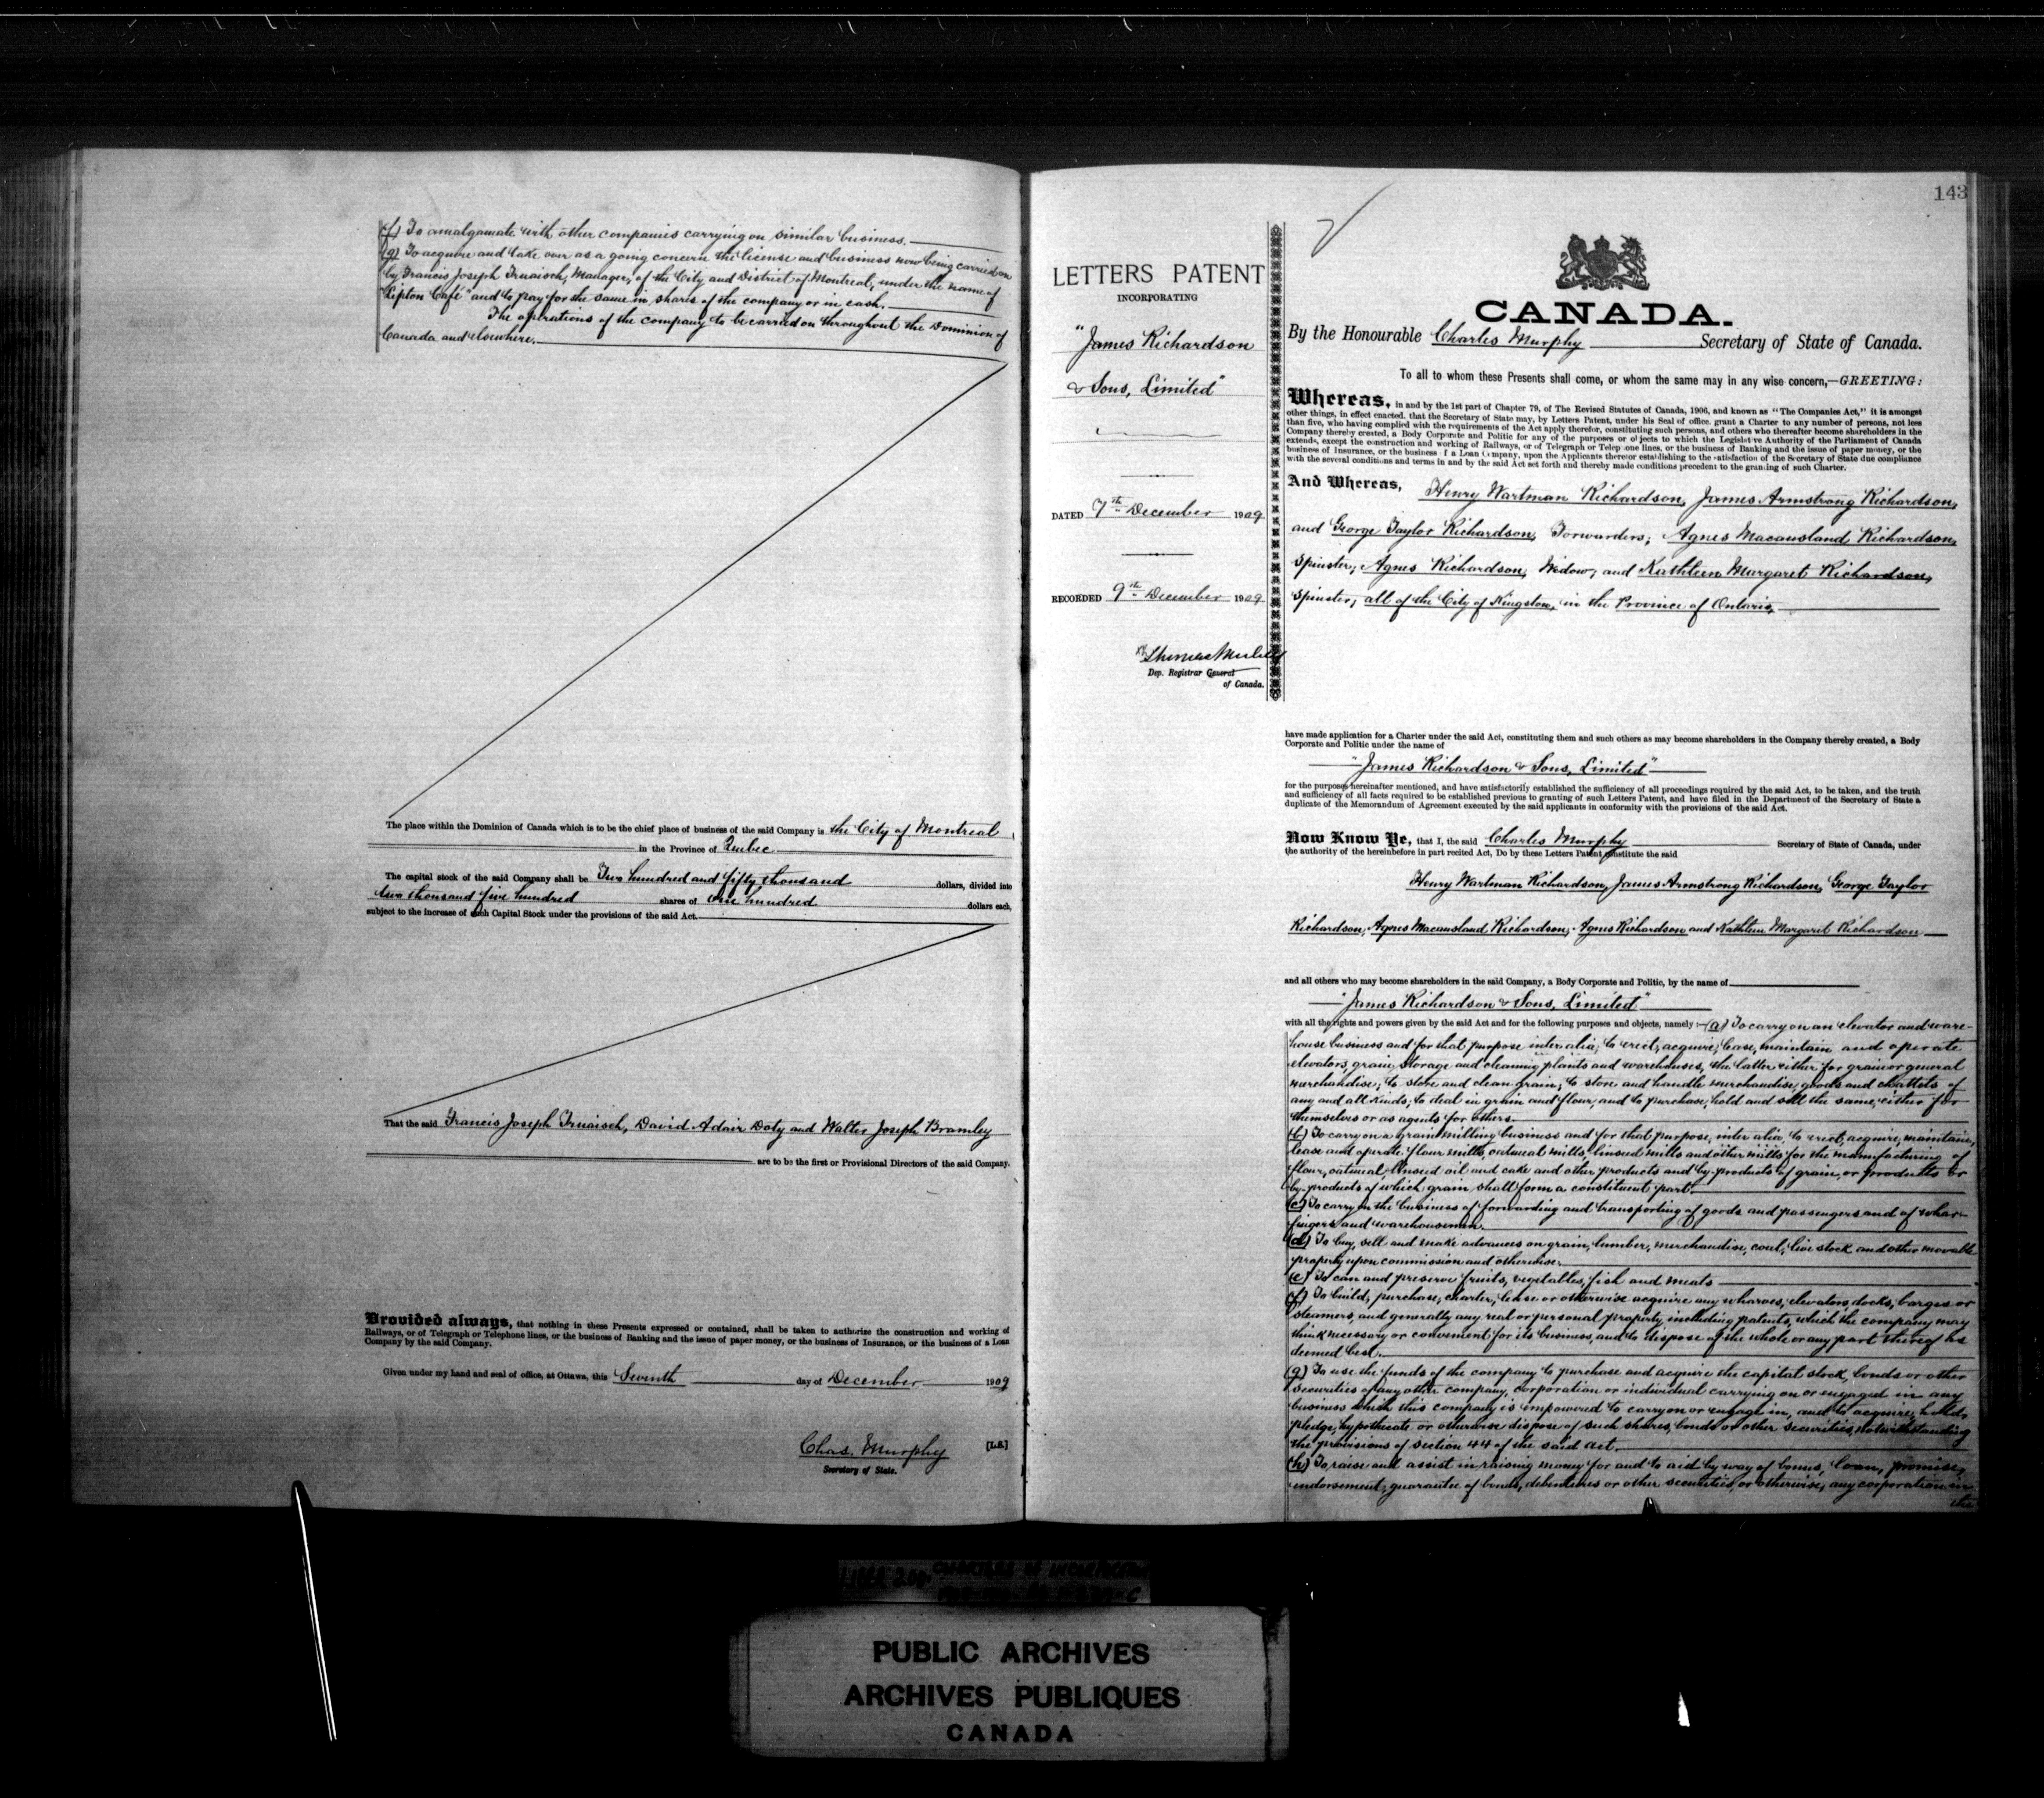 (f) To amalgamate with other companies carrying on similar business.
(g) To acquire and take over as a going concern the license and business now being carried on
by Francis Joseph Truaisch, Manager, of the City and District of Montreal, under the name of
"Lipton Café" and to pay for the same in shares of the company or in cash.
The operations of the company to be carried on throughout the Dominion of
Canada and elsewhere.
The place within the Dominion of Canada which is to be the chief place of business of the said Company is the City of Montreal
in the Province of Quebec
The capital stock of the said Company shall be Two hundred and fifty thousand dollars, divided into
two thousand five hundred shares of One hundred dollars each,
subject to the increase of such Capital Stock under the provisions of the said Act.
That the said Francis Joseph Truaisch, David Adair Doty and Walter Joseph Bramley
are to be the first or Provisional Directors of the said Company.
Provided always, that nothing in these Presents expressed or contained, shall be taken to authorize the construction and working of
Railways, or of Telegraph or Telephone lines, or the business of Banking and the issue of paper money, or the business of Insurance, or the business of a Loan
Company by the said Company.
Given under my hand and seal of office, at Ottawa, this Seventh day of December 1909
Chas. Murphy [L.S.]
Secretary of State.
143
LETTERS PATENT
INCORPORATING
"James Richardson
& Sons, Limited"
DATED 7th December 1909
RECORDED 9th December 1909
Dep. Registrar General
of Canada.
CANADA.
By the Honourable Charles Murphy Secretary of State of Canada.
To all to whom these Presents shall come, or whom the same may in any wise concern,—GREETING:
Whereas, in and by the 1st part of Chapter 79, of The Revised Statutes of Canada, 1906, and known as "The Companies Act," it is amongst
other things, in effect enacted, that the Secretary of State may, by Letters Patent, under his Seal of office, grant a Charter to any number of persons, not less
than five, who having complied with the requirements of the Act apply therefor, constituting such persons, and others who thereafter become shareholders in the
Company thereby created, a Body Corporate and Politic for any of the purposes or objects to which the Legislative Authority of the Parliament of Canada
extends, except the construction and working of Railways, or of Telegraph or Telephone lines, or the business of Banking and the issue of paper money, or the
business of Insurance, or the business of a Loan Company, upon the Applicants therefor establishing to the satisfaction of the Secretary of State due compliance
with the several conditions and terms in and by the said Act set forth and thereby made conditions precedent to the granting of such Charter.
And Whereas, Henry Wartman Richardson, James Armstrong Richardson,
and George Taylor Richardson, Forwarders; Agnes Macausland Richardson,
Spinster; Agnes Richardson, Widow, and Kathleen Margaret Richardson,
Spinster, all of the City of Kingston, in the Province of Ontario,
have made application for a Charter under the said Act, constituting them and such others as may become shareholders in the Company thereby created, a Body
Corporate and Politic under the name of
"James Richardson & Sons, Limited"
for the purposes hereinafter mentioned, and have satisfactorily established the sufficiency of all proceedings required by the said Act, to be taken, and the truth
and sufficiency of all facts required to be established previous to granting of such Letters Patent, and have filed in the Department of the Secretary of State a
duplicate of the Memorandum of Agreement executed by the said applicants in conformity with the provisions of the said Act.
Now Know Ye, that I, the said Charles Murphy Secretary of State of Canada, under
the authority of the hereinbefore in part recited Act, Do by these Letters Patent constitute the said
Henry Wartman Richardson, James Armstrong Richardson, George Taylor
Richardson, Agnes Macausland Richardson, Agnes Richardson and Kathleen Margaret Richardson
and all others who may become shareholders in the said Company, a Body Corporate and Politic, by the name of
"James Richardson & Sons, Limited"
with all the rights and powers given by the said Act and for the following purposes and objects, namely:—(a) To carry on an elevator and ware-
house business and for that purpose inter alia, to erect, acquire, lease, maintain and operate
elevators, grain storage and cleaning plants and warehouses, the latter either for grain or general
merchandise; to store and clean grain; to store and handle merchandise, goods and chattels of
any and all kinds; to deal in grain and flour, and to purchase, hold and sell the same, either for
themselves or as agents for others.
(b) To carry on a grain milling business and for that purpose, inter alia, to erect, acquire, maintain,
lease and operate flour mills, oatmeal mills, linseed mills and other mills for the manufacturing of
flour, oatmeal, linseed oil and cake and other products and by-products of grain, or products or
by-products of which grain shall form a constituent part.
(c) To carry on the business of forwarding and transporting of goods and passengers and of whar-
fingers and warehousemen.
(d) To buy, sell and make advances on grain, lumber, merchandise, coal, live stock and other movable
property upon commission and otherwise.
(e) To can and preserve fruits, vegetables, fish and meats
(f) To build, purchase, charter, lease or otherwise acquire any wharves, elevators, docks, barges or
steamers, and generally any real or personal property, including patents, which the company may
think necessary or convenient for its business, and to dispose of the whole or any part thereof as
deemed best.
(g) To use the funds of the company to purchase and acquire the capital stock, bonds or other
securities of any other company, corporation or individual carrying on or engaged in any
business which this company is empowered to carry on or engage in, and to acquire, hold,
pledge, hypothecate or otherwise dispose of such shares, bonds or other securities, notwithstanding
the provisions of section 44 of the said act.
(h) To raise and assist in raising money for and to aid by way of bonus, loan, promise,
endorsement, guarantee of bonds, debentures or other securities, or otherwise, any corporation in
the
PUBLIC ARCHIVES
ARCHIVES PUBLIQUES
CANADA